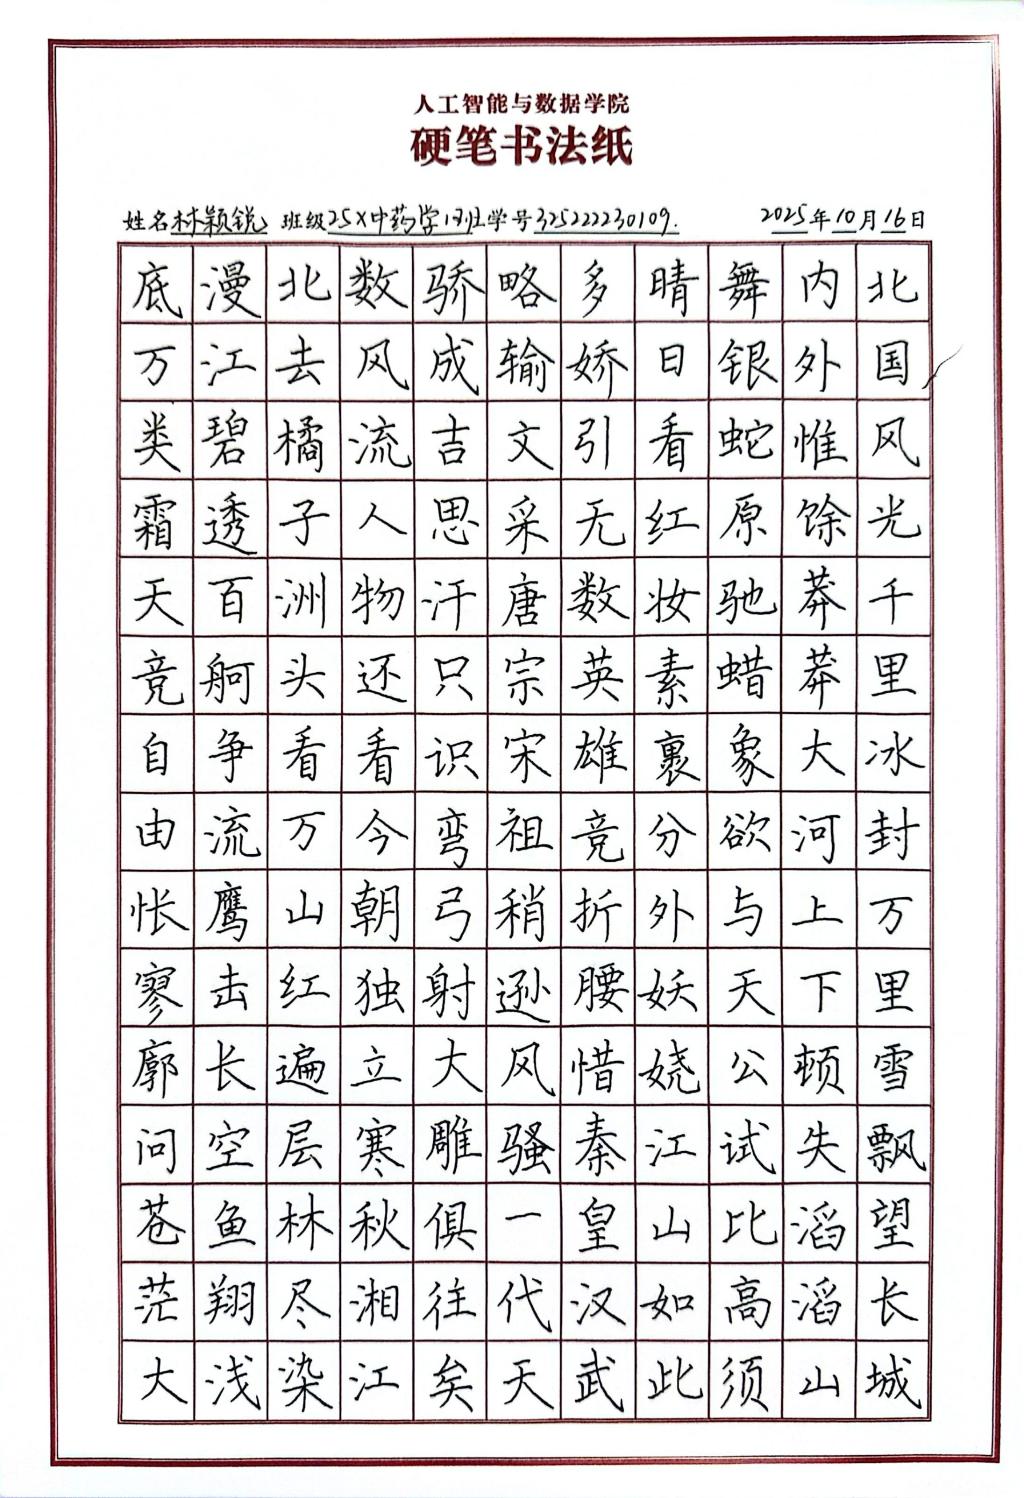 人工智能与数据学院
硬笔书法纸
姓名林颖锐 班级25X中药学1班学号325222230109. 2025年10月16日
北国风光千里冰封万里雪飘望长城
内外惟馀莽莽大河上下顿失滔滔山
舞银蛇原驰蜡象欲与天公试比高须
晴日看红妆素裹分外妖娆江山如此
多娇引无数英雄竞折腰惜秦皇汉武
略输文采唐宗宋祖稍逊风骚一代天
骄成吉思汗只识弯弓射大雕俱往矣
数风流人物还看今朝独立寒秋湘江
北去橘子洲头看万山红遍层林尽染
漫江碧透百舸争流鹰击长空鱼翔浅
底万类霜天竞自由怅寥廓问苍茫大